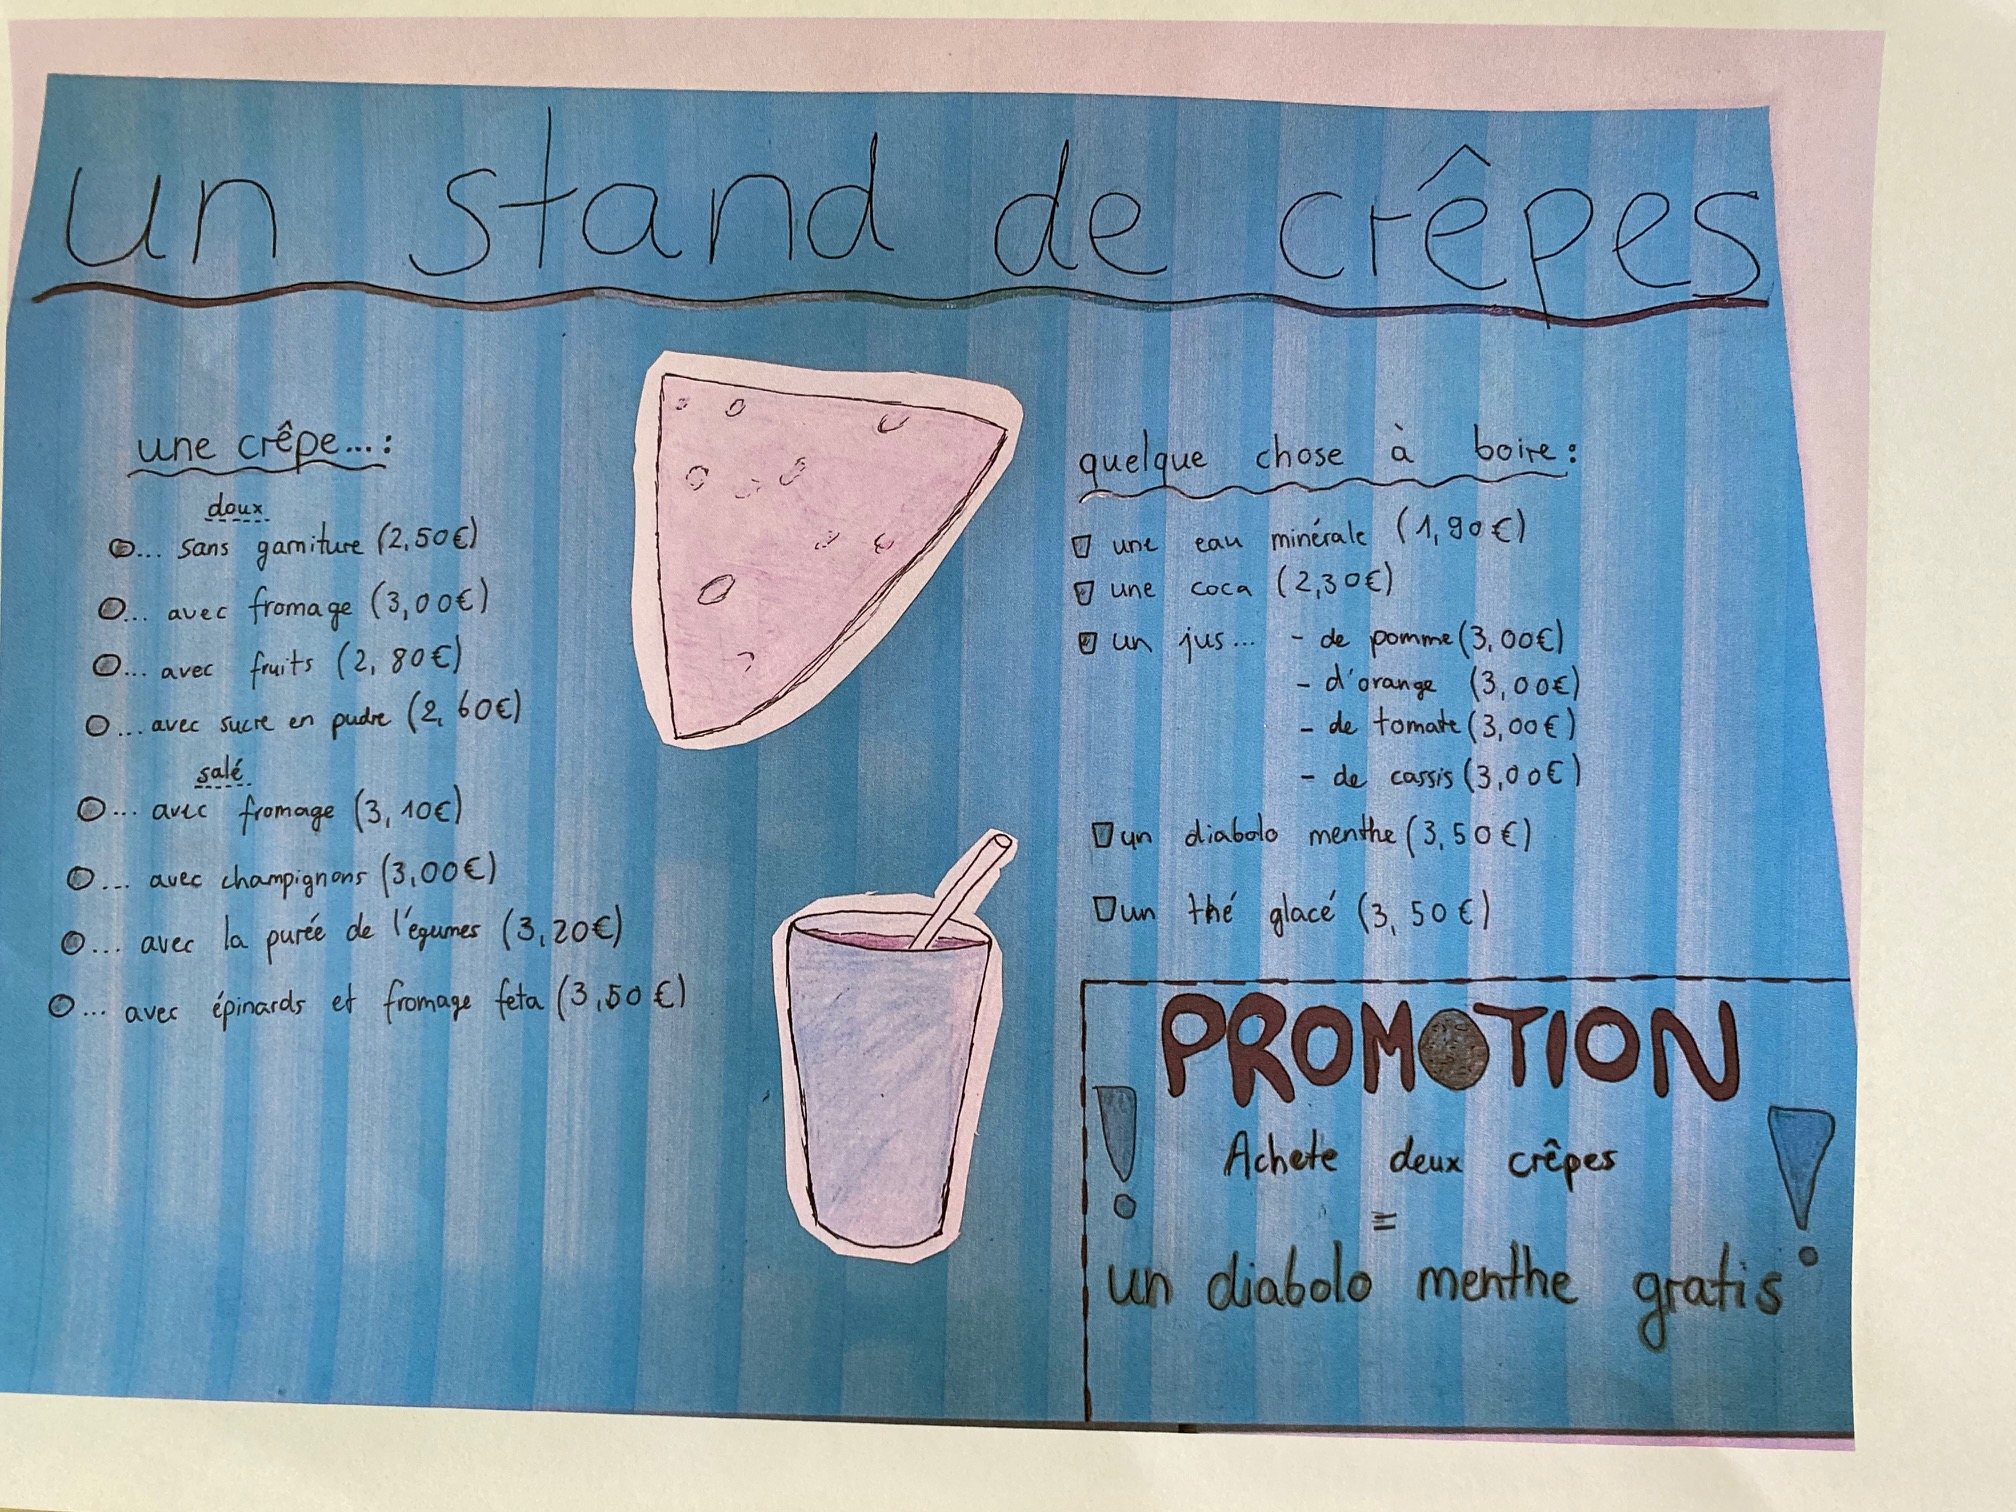 un stand de crêpes
une crêpe...:
doux
... sans garniture (2,50€)
... avec fromage (3,00€)
... avec fruits (2,80€)
... avec sucre en pudre (2,60€)
salé
... avec fromage (3,10€)
... avec champignons (3,00€)
... avec la purée de l'égumes (3,20€)
... avec épinards et fromage feta (3,50€)
quelque chose à boire:
une eau minérale (1,90€)
une coca (2,30€)
un jus... - de pomme (3,00€)
- d'orange (3,00€)
- de tomate (3,00€)
- de cassis (3,00€)
un diabolo menthe (3,50€)
un thé glacé (3,50€)
PROMOTION
! Achete deux crêpes !
=
un diabolo menthe gratis